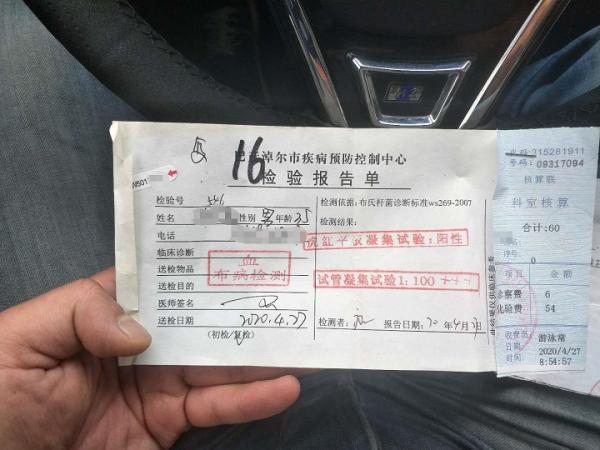 16
巴彦淖尔市疾病预防控制中心
检验报告单
检验号 546
姓名 性别 男 年龄 35
电话
临床诊断
送检物品
送检目的
血
布病检测
医师签名
送检日期 2020.4.27
(初检/复检)
检测依据:布氏杆菌诊断标准ws269-2007
检测结果:
虎红平板凝集试验:阳性
试管凝集试验1:100 +++
检测者: 报告日期: 20 年 4 月 日
代码:315281911
号码:09317094
核算联
科室核算
合计:60
序号:
0
项目 金额
诊察费 6
化验费 54
收费员 游泳常
日期 2020/4/27
时间: 8:54:57